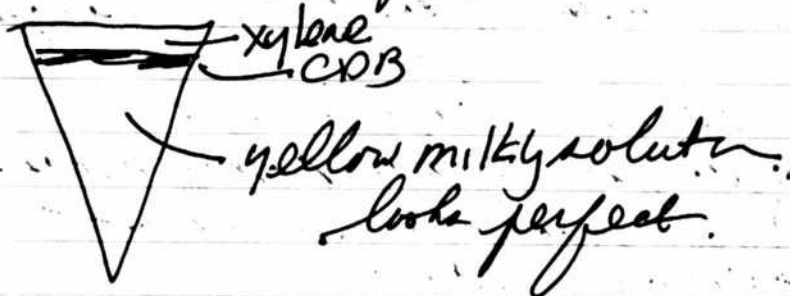 xylene
CDB
yellow milky solutn.
looks perfect.